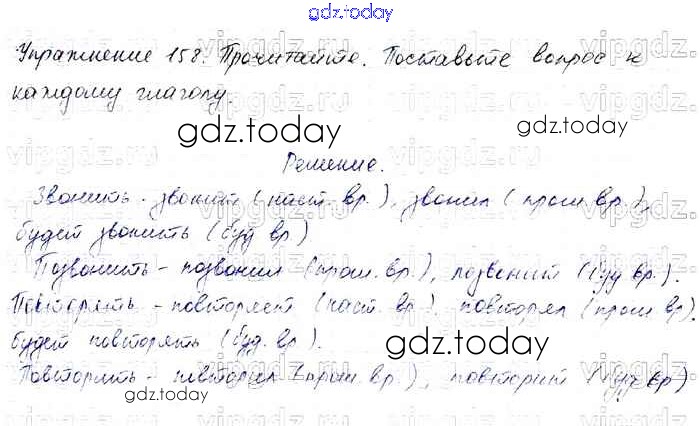 gdz.today
Упражнение 158. Прочитайте. Поставьте вопрос к
каждому глаголу.
gdz.today
gdz.today
Решение.
Звонить - звонит (наст. вр.), звонил (прош. вр.),
будет звонить (буд. вр.)
Позвонить - позвонил (прош. вр.), позвонит (буд. вр.).
Повторять - повторяет (наст. вр.), повторял (прош. вр.),
будет повторять (буд. вр.).
gdz.today
Повторить - повторил (прош. вр.), повторит (буд. вр.)
gdz.today